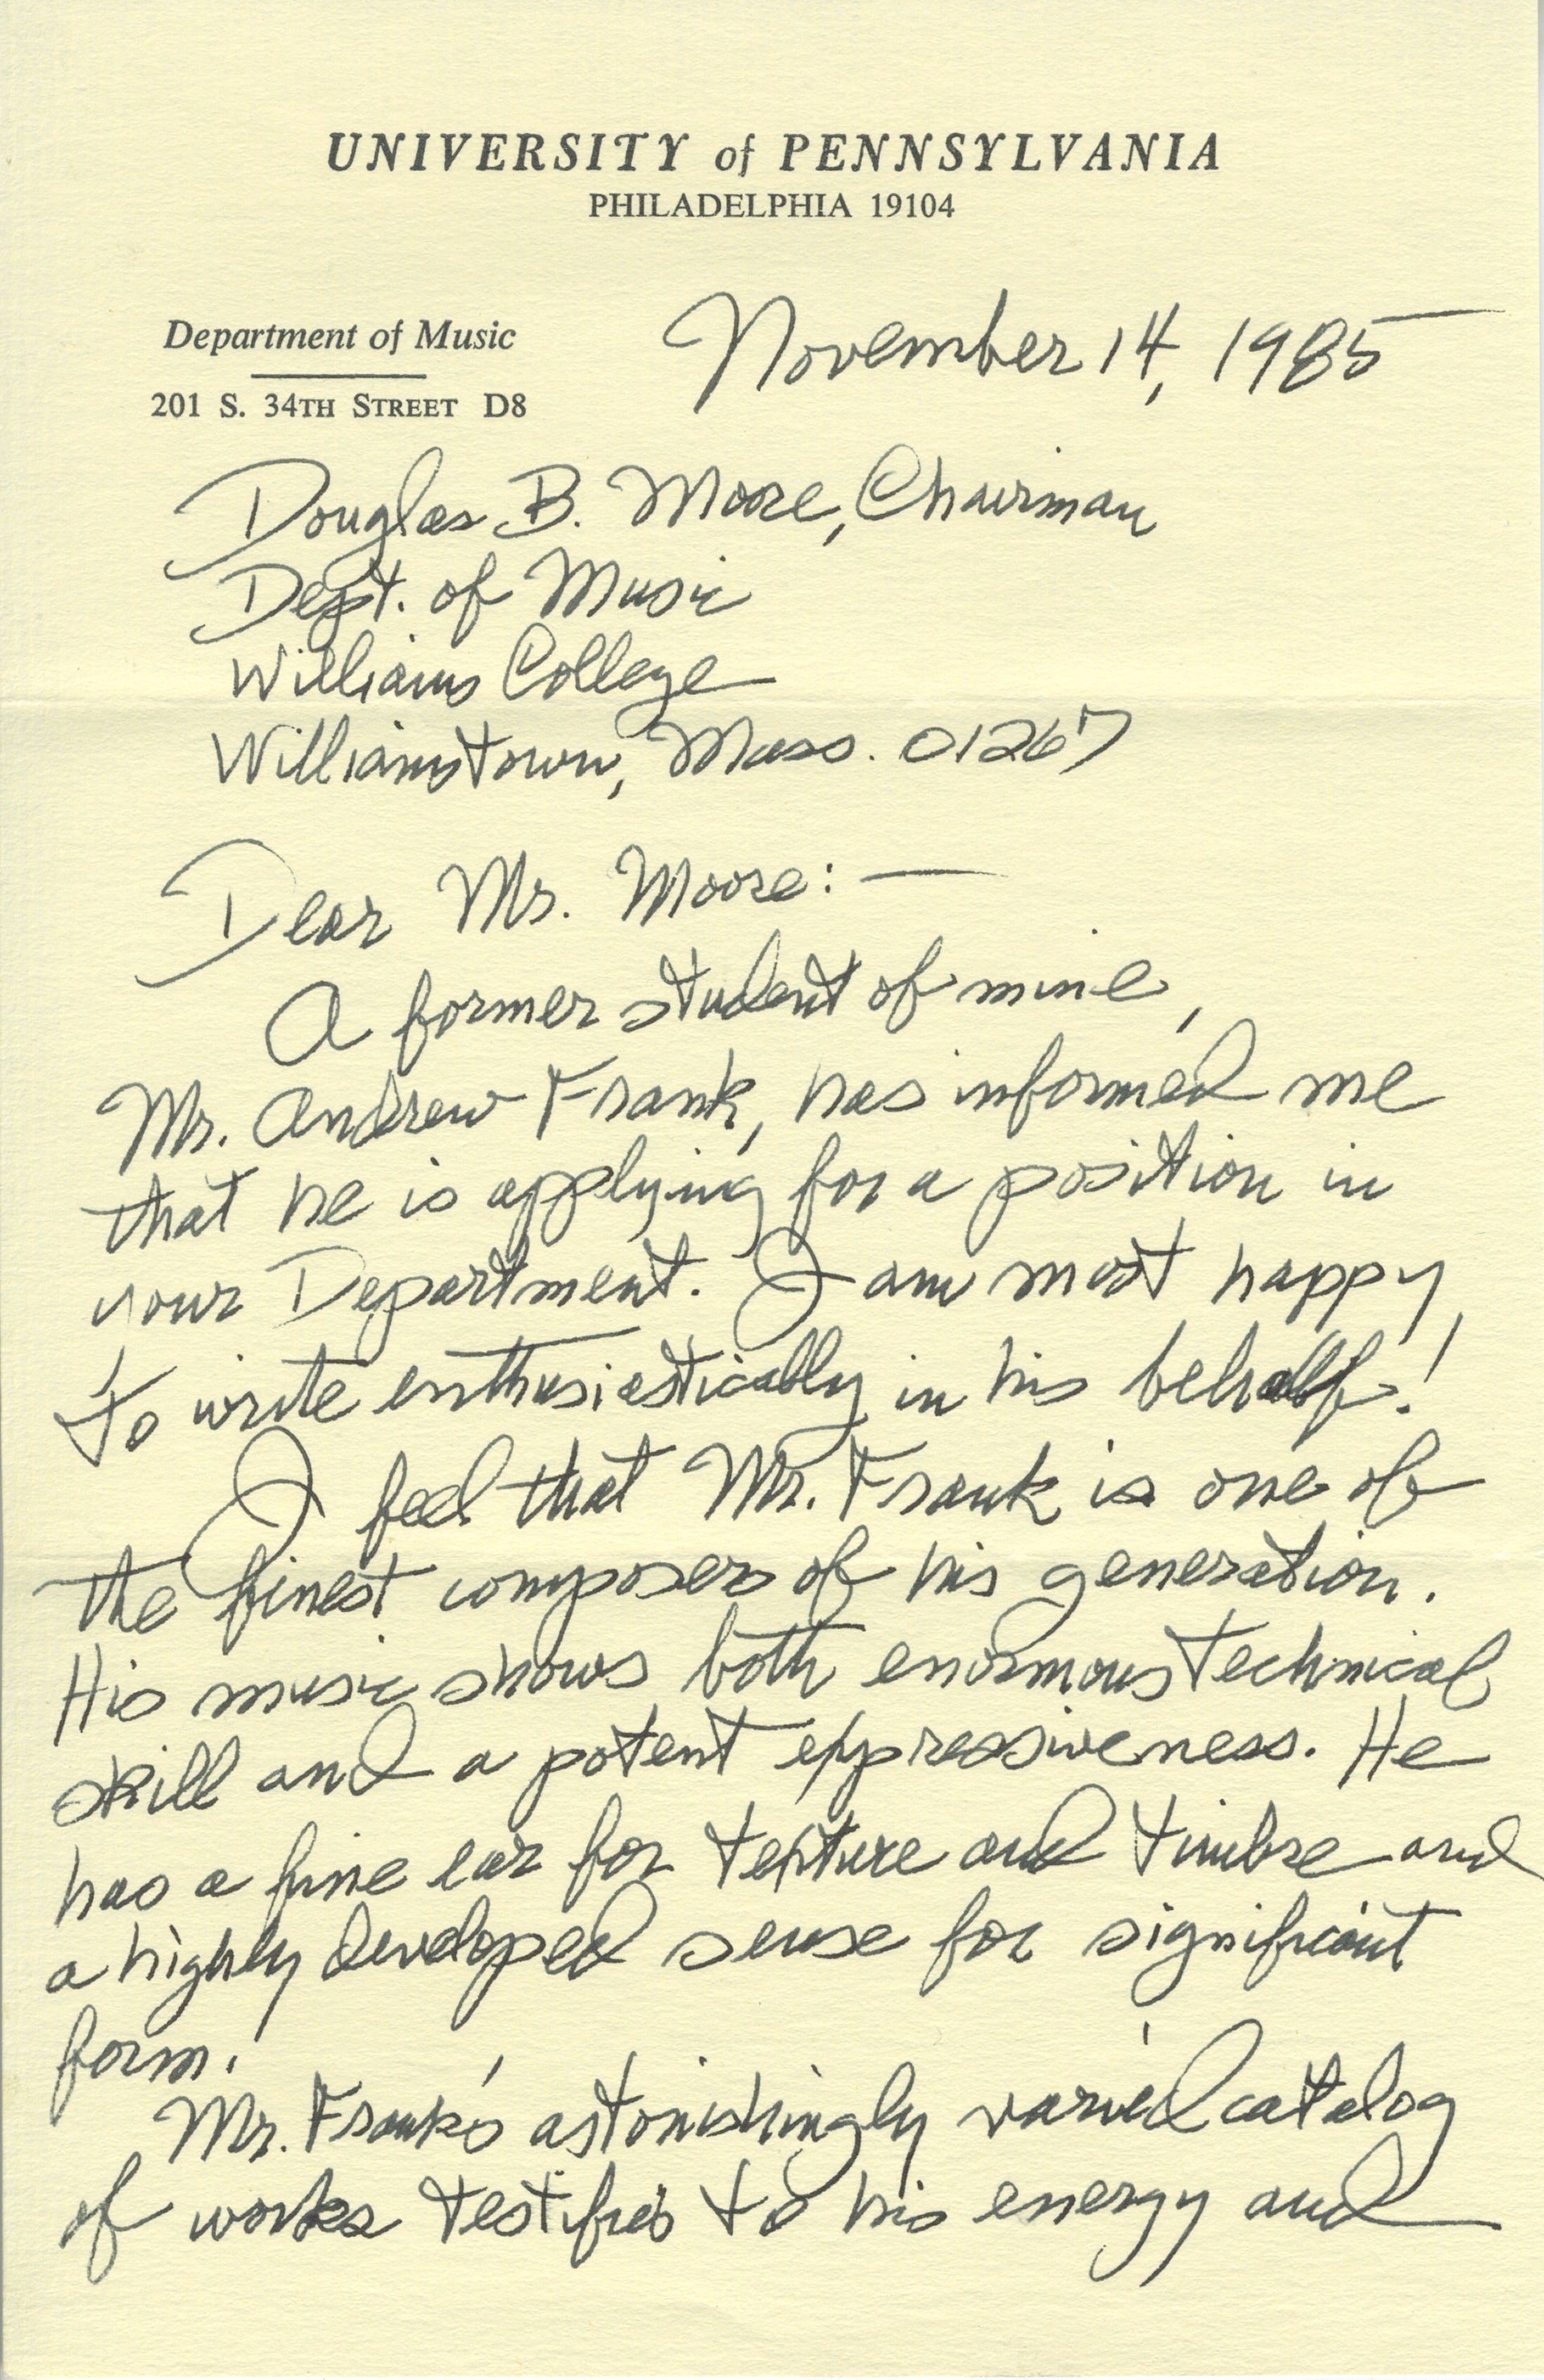 UNIVERSITY of PENNSYLVANIA
PHILADELPHIA 19104
Department of Music
201 S. 34TH STREET D8
November 14, 1985
Douglas B. Moore, Chairman
Dept. of Music
Williams College
Williamstown, Mass. 01267
Dear Mr. Moore: —
A former student of mine,
Mr. Andrew Frank, has informed me
that he is applying for a position in
your Department. I am most happy
to write enthusiastically in his behalf!
I feel that Mr. Frank is one of
the finest composers of his generation.
His music shows both enormous technical
skill and a potent expressiveness. He
has a fine ear for texture and timbre and
a highly developed sense for significant
form.
Mr. Frank's astonishingly varied catalog
of works testifies to his energy and